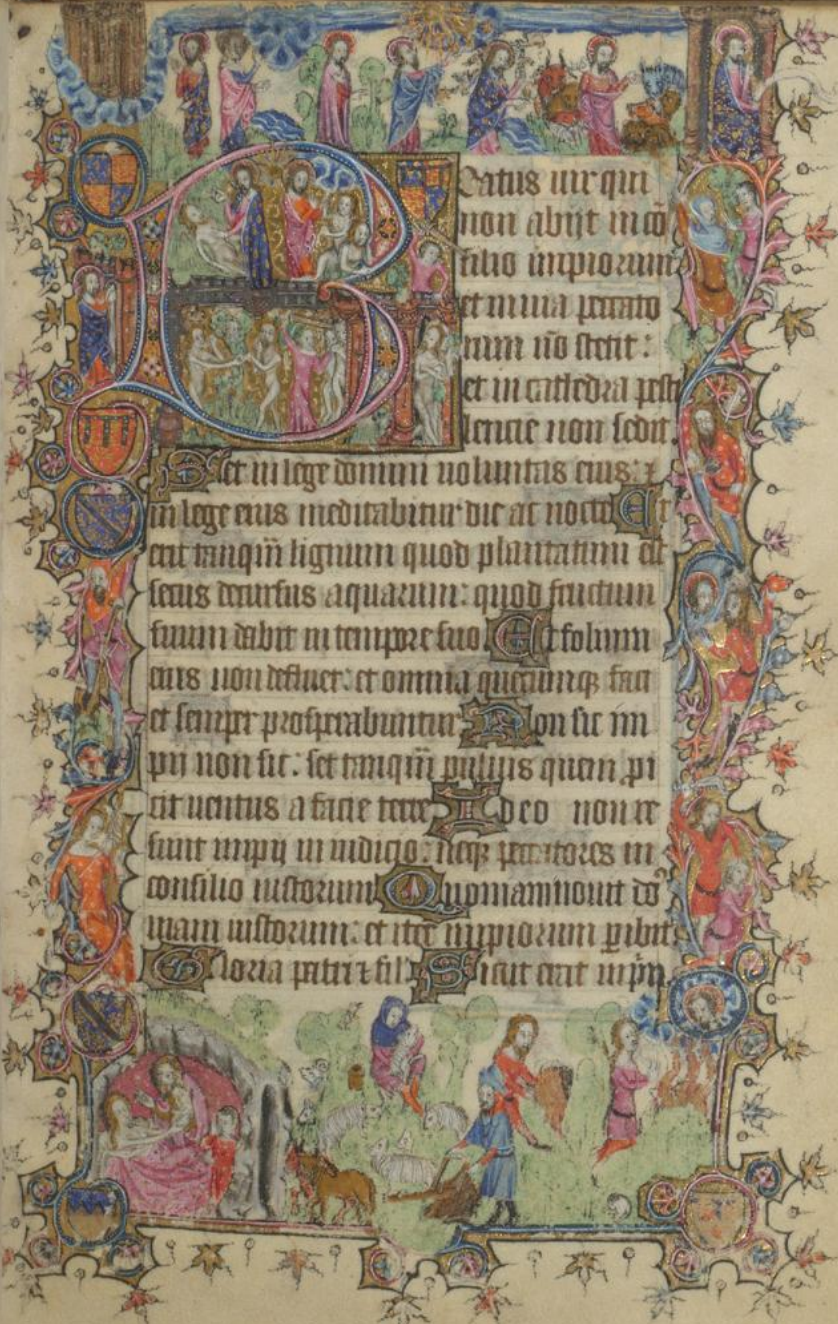 Beatus uir qui
non abijt in cō
silio impiorum
et in uia peccato
rum nō stetit :
et in cathedra pesti
lencie non sedit.
Set in lege domini uoluntas eius: ⁊
in lege eius meditabitur die ac nocte Et
erit tanqm̄ lignum quod plantatum est
secus decursus aquarum: quod fructum
suum dabit in tempore suo Et folium
eius non defluet: et omnia quecunqꝫ faci
et semper prosperabuntur Non sic im
pij non sic: set tanqm̄ puluis quem ꝓi
cit uentus a facie terre Ideo non re
sunt impij in iudicio: neqꝫ peccatores in
consilio iustorum Quoniam nouit dō
uiam iustorum: et iter impiorum ꝑibit
Gloria patri ⁊ fil Sicut erat in pn̄